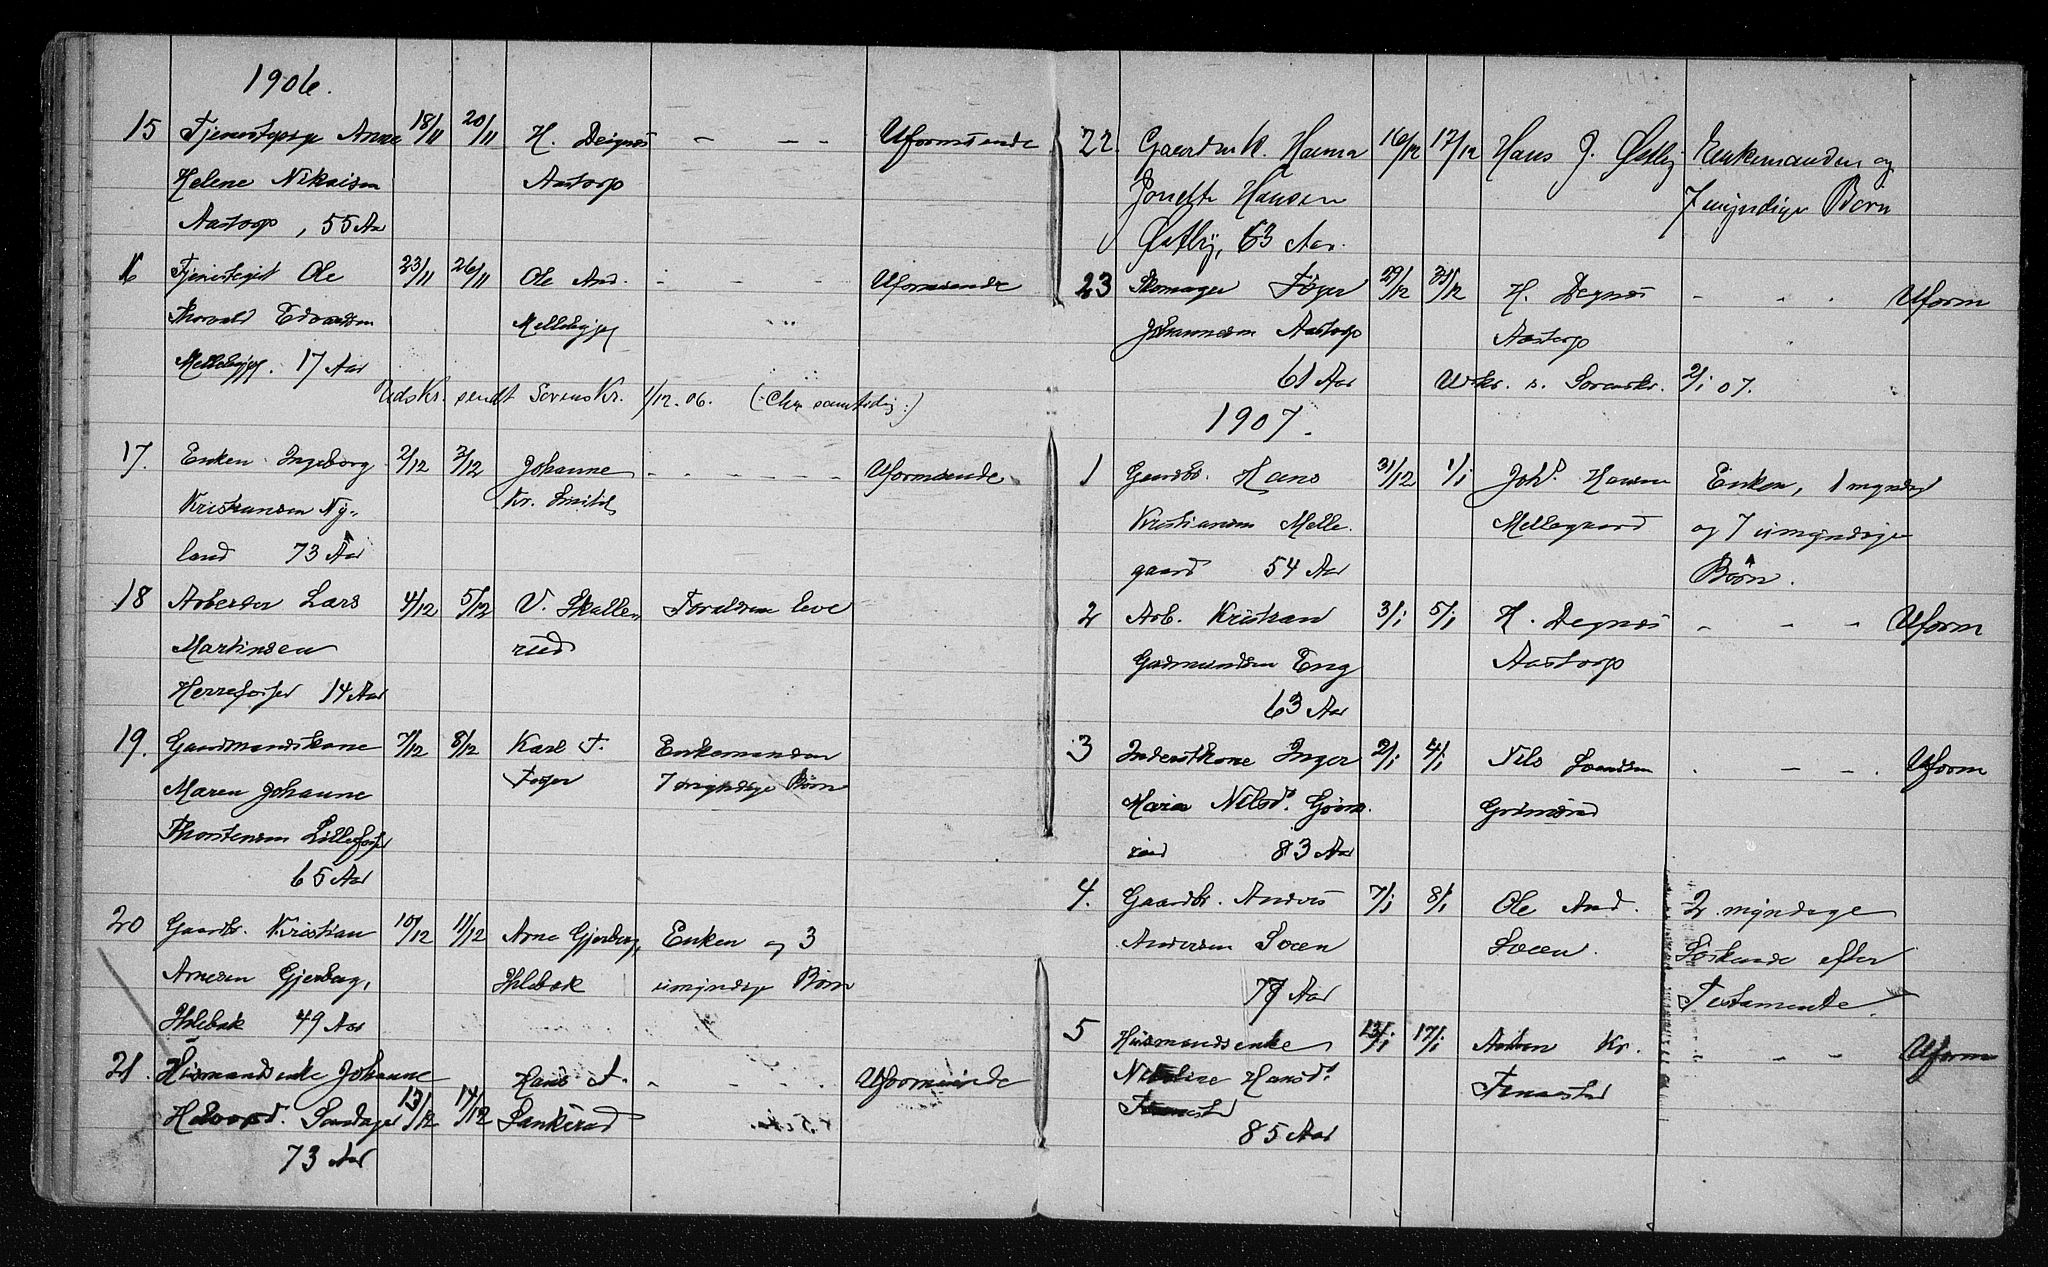 1906.
15 Tjenestepige Anne 18/11 20/11 H. Degnæs - - - Uformuende
Helene Nikaisen Aastorp
Aastorp, 55 Aar
16 Tjenestegut Ole 23/11 26/11 Ole And. - - - Uformuende
Thorvald Edvardsen Mellebyje
Mellebyje. 17 Aar
Udskr. sendt Sorenskr. 1/12.06. (Chr samtidig:)
17. Enken Ingeborg 2/12 3/12 Johanne - - - - Uformuende
Kristiansen Ny- Kr.
land 73 Aar
18 Arbeider Lars 4/12 5/12 V. Skulle- Foreldrene leve
Martinsen rud
Herrefosser 14 Aar
19. Gaardmandskone 7/12 8/12 Karl T. Enkemanden
Maren Johanne Fosser 7 myndige Børn
Thorstensen Lillefosser
65 Aar
20 Gaardbr. Kristian 10/12 11/12 Arne Gjerberg, Enken og 3
Arnesen Gjerberg, Holebæk umyndige Børn
Holebæk 49 Aar
21. Husmandsenke Johanne Hans A. - - - Uformuende
Halvorsd. 13/12 14/12 Lankerud
73 Aar
22. Gaardmk. Hanna 16/12 17/12 Hans J. Østby Enkemanden og
Jonette Hansen 7 myndige Børn
Østby, 63 Aar.
23 Skomager 29/12 31/12 H. Degnæs - - - Uform
Johannesen Aastorp Aastorp
61 Aar Udskr. s. Sorenskr. 2/1 07.
1907.
1 Gaardbr. Hans 31/12 1/1 Johs. Hansen Enken, 1 myndig
Kristiansen Melle- Mellegaard og 7 umyndige
gaard 54 Aar Børn.
2 Arb. Kristian 3/1 5/1 H. Degnæs - - - Uform
Gudmundsen Eng Aastorp
63 Aar
3 Inderstkone Inger 2/1 4/1 Nils Svendsen - - - Uform
Marie Nilsd. Grims- Grimsrud
rud 83 Aar
4. Gaardbr. Anders 7/1 8/1 Ole And. 2 myndige
Andersen Soeen Soeen. Søskende efter
77 Aar Testamente.
5 Husmandsenke 13/1 17/1 Anton Kr. - - - Uform
Nikoline Hansd.
85 Aar